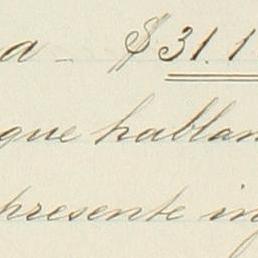 a - $ 31.1
que hablan
presente in